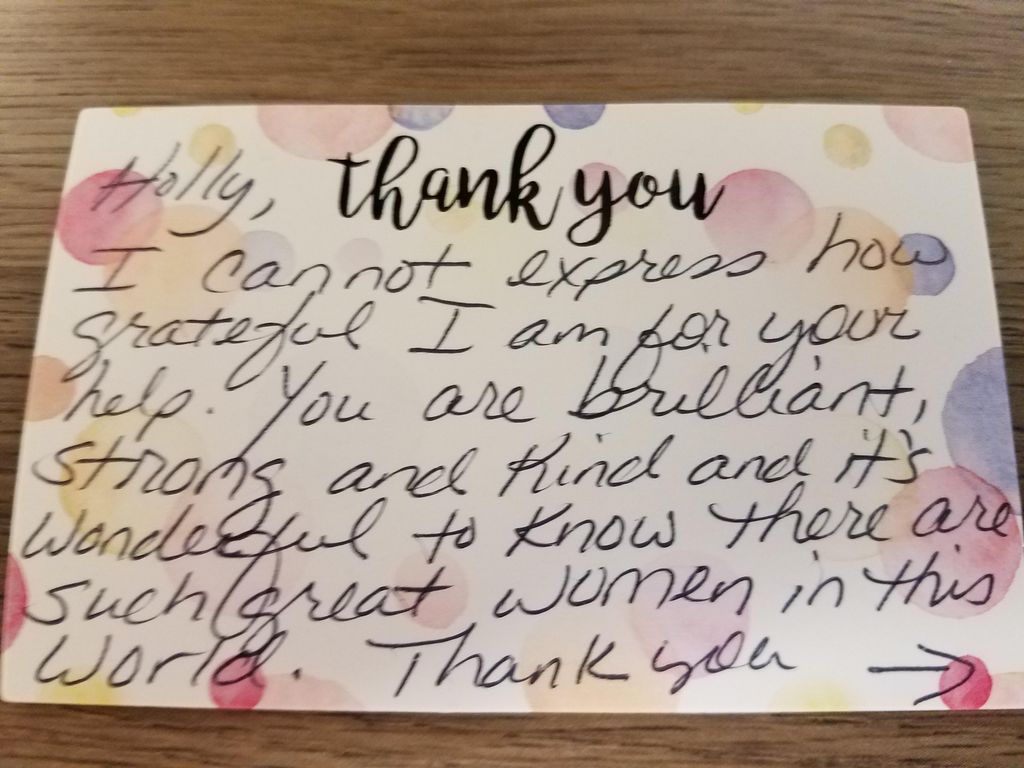 Holly, thank you
I cannot express how
grateful I am for your
help. You are brilliant,
strong and kind and it's
wonderful to know there are
such great women in this
world. Thank you →